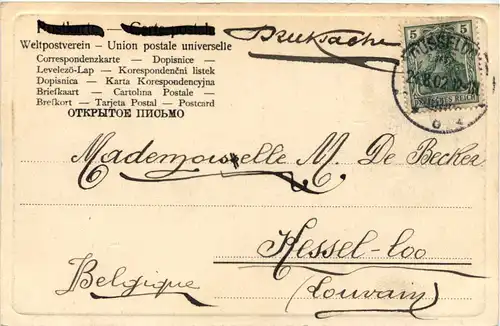 Postkarte — Carte postale
Drucksache
Weltpostverein – Union postale universelle
Correspondenzkarte – Dopisnice –
Levelezö-Lap – Korespondenční listek
Dopisnica – Karta Korespondencyjna
Briefkaart – Cartolina Postale –
Brefkort – Tarjeta Postal – Postcard
ОТКРЫТОЕ ПИСЬМО
5 5
DÜSSELDORF
DEUTSCHES REICH
Mademoiselle M. De Becker
Kessel-loo
(Louvain)
Belgique